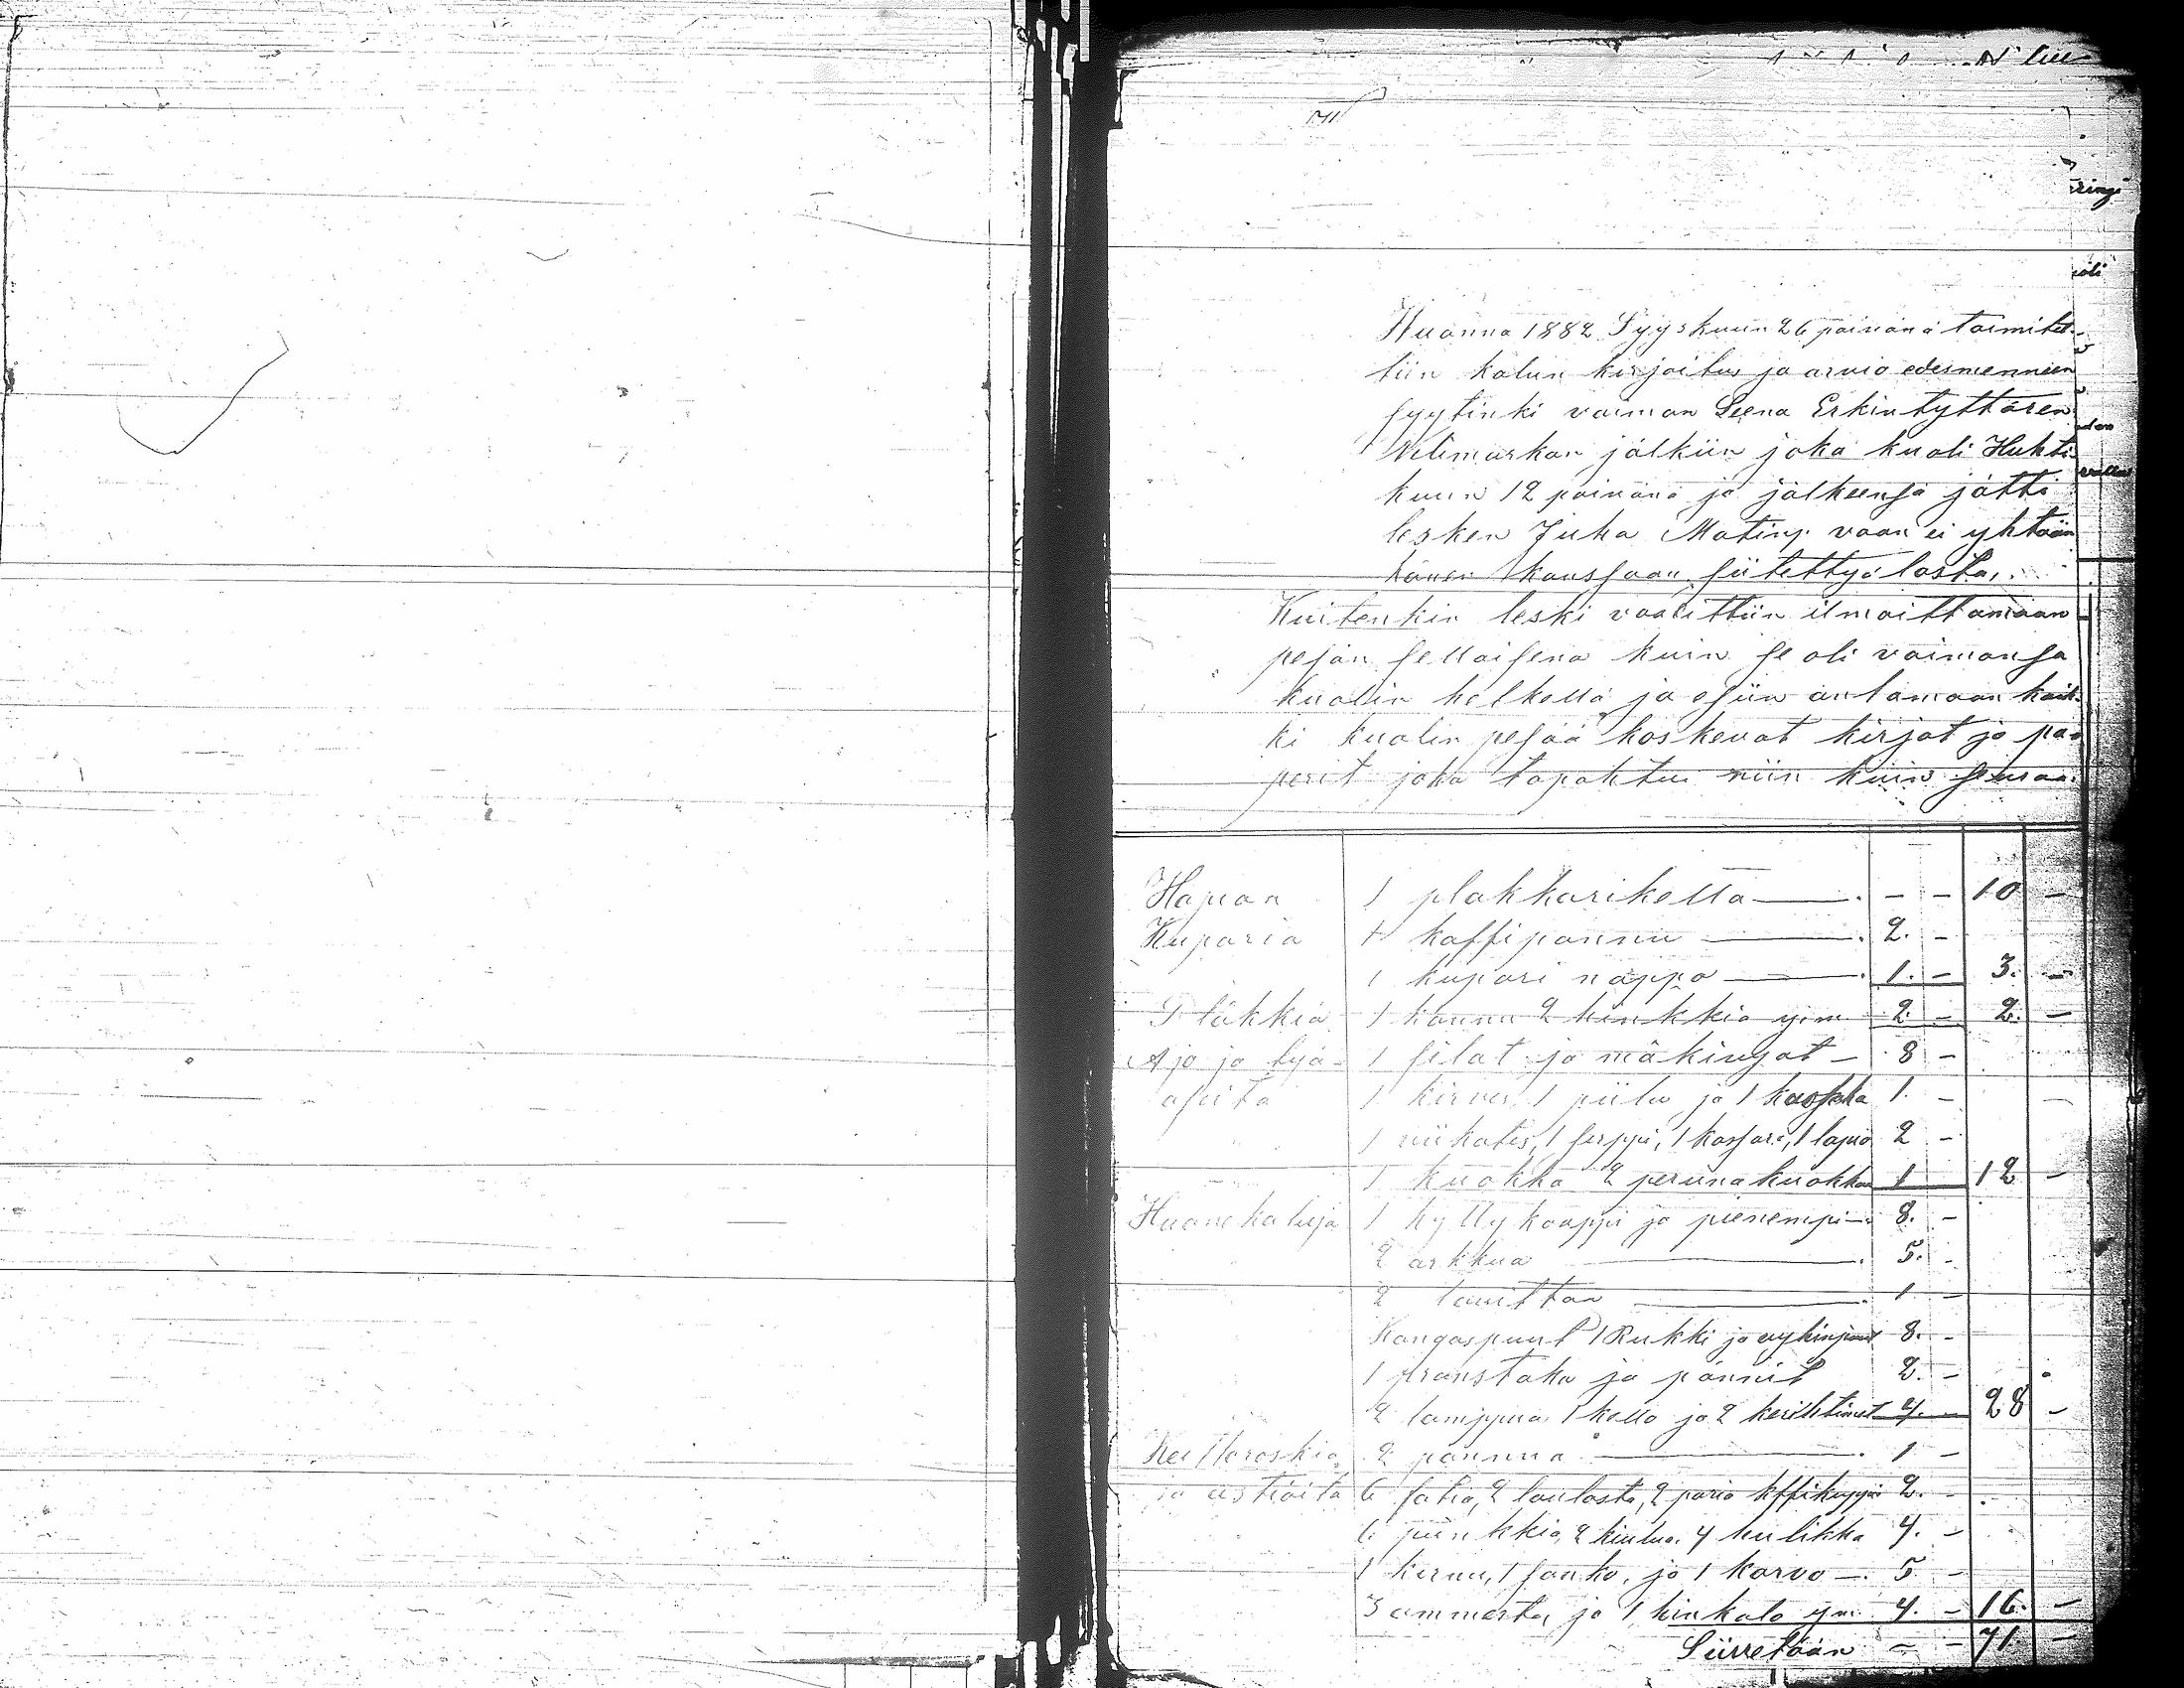 Wuonna 1882 Syyskuun 26 päivänä toimitet-
tiin kalun kirjoitus ja arvio edesmenneen
syytinki vaimon Leena Erkintyttären
jälkiin joka kuoli Huhti
kuun 12 päivänä ja jälkeensä jätti
lesken Juha Matinp. vaan ei yhtään
hänen kanssaan siitettyä lasta,
Kuitenkin leski vaadittiin ilmoittamaan
pesän sellaisena kuin se oli vaimonsa
kuolin hetkellä ja esiin antamaan kaik-
ki kuolin pesää koskevat kirjat ja pa-
perit joka tapahtui niin kuin seuraa.
Hopian 1 plakkarikello — . - - 10 -
Kuparia 1 kaffipannu — . 2. -
1 kupari nappo — . 1. - 3. -
Pläkkiä 1 kannu 2 hinkkiä ym 2 - 2. -
Ajo ja työ- 1 silat ja mäkivyöt - 8 -
aseita 1 kirves 1 piilu ja 1 1. -
1 viikate, 1 sirppi, 1 1 lapio 2 -
1 kuokka 2 perunakuokkaa 1 12 -
Huonekaluja 1 hyllykaappi ja pienempi - 8. -
2 arkkua — . 5. -
2 — . 1 -
Kangaspuut 1 Rukki ja 8. -
1 ja 2. -
2 lamppua 1 kello ja 2 4. - 28 -
2 pannua — . 1 -
ja astioita 6 fatia, 2 laulasta, 2 paria kffikuppia 2. -
6 4 4. -
1 kirnu, 1 sanko, ja 1 korvo - . 5 -
3 ammesta, ja 1 hinkalo ym 4. - 16. -
Siirretään - - 71. -